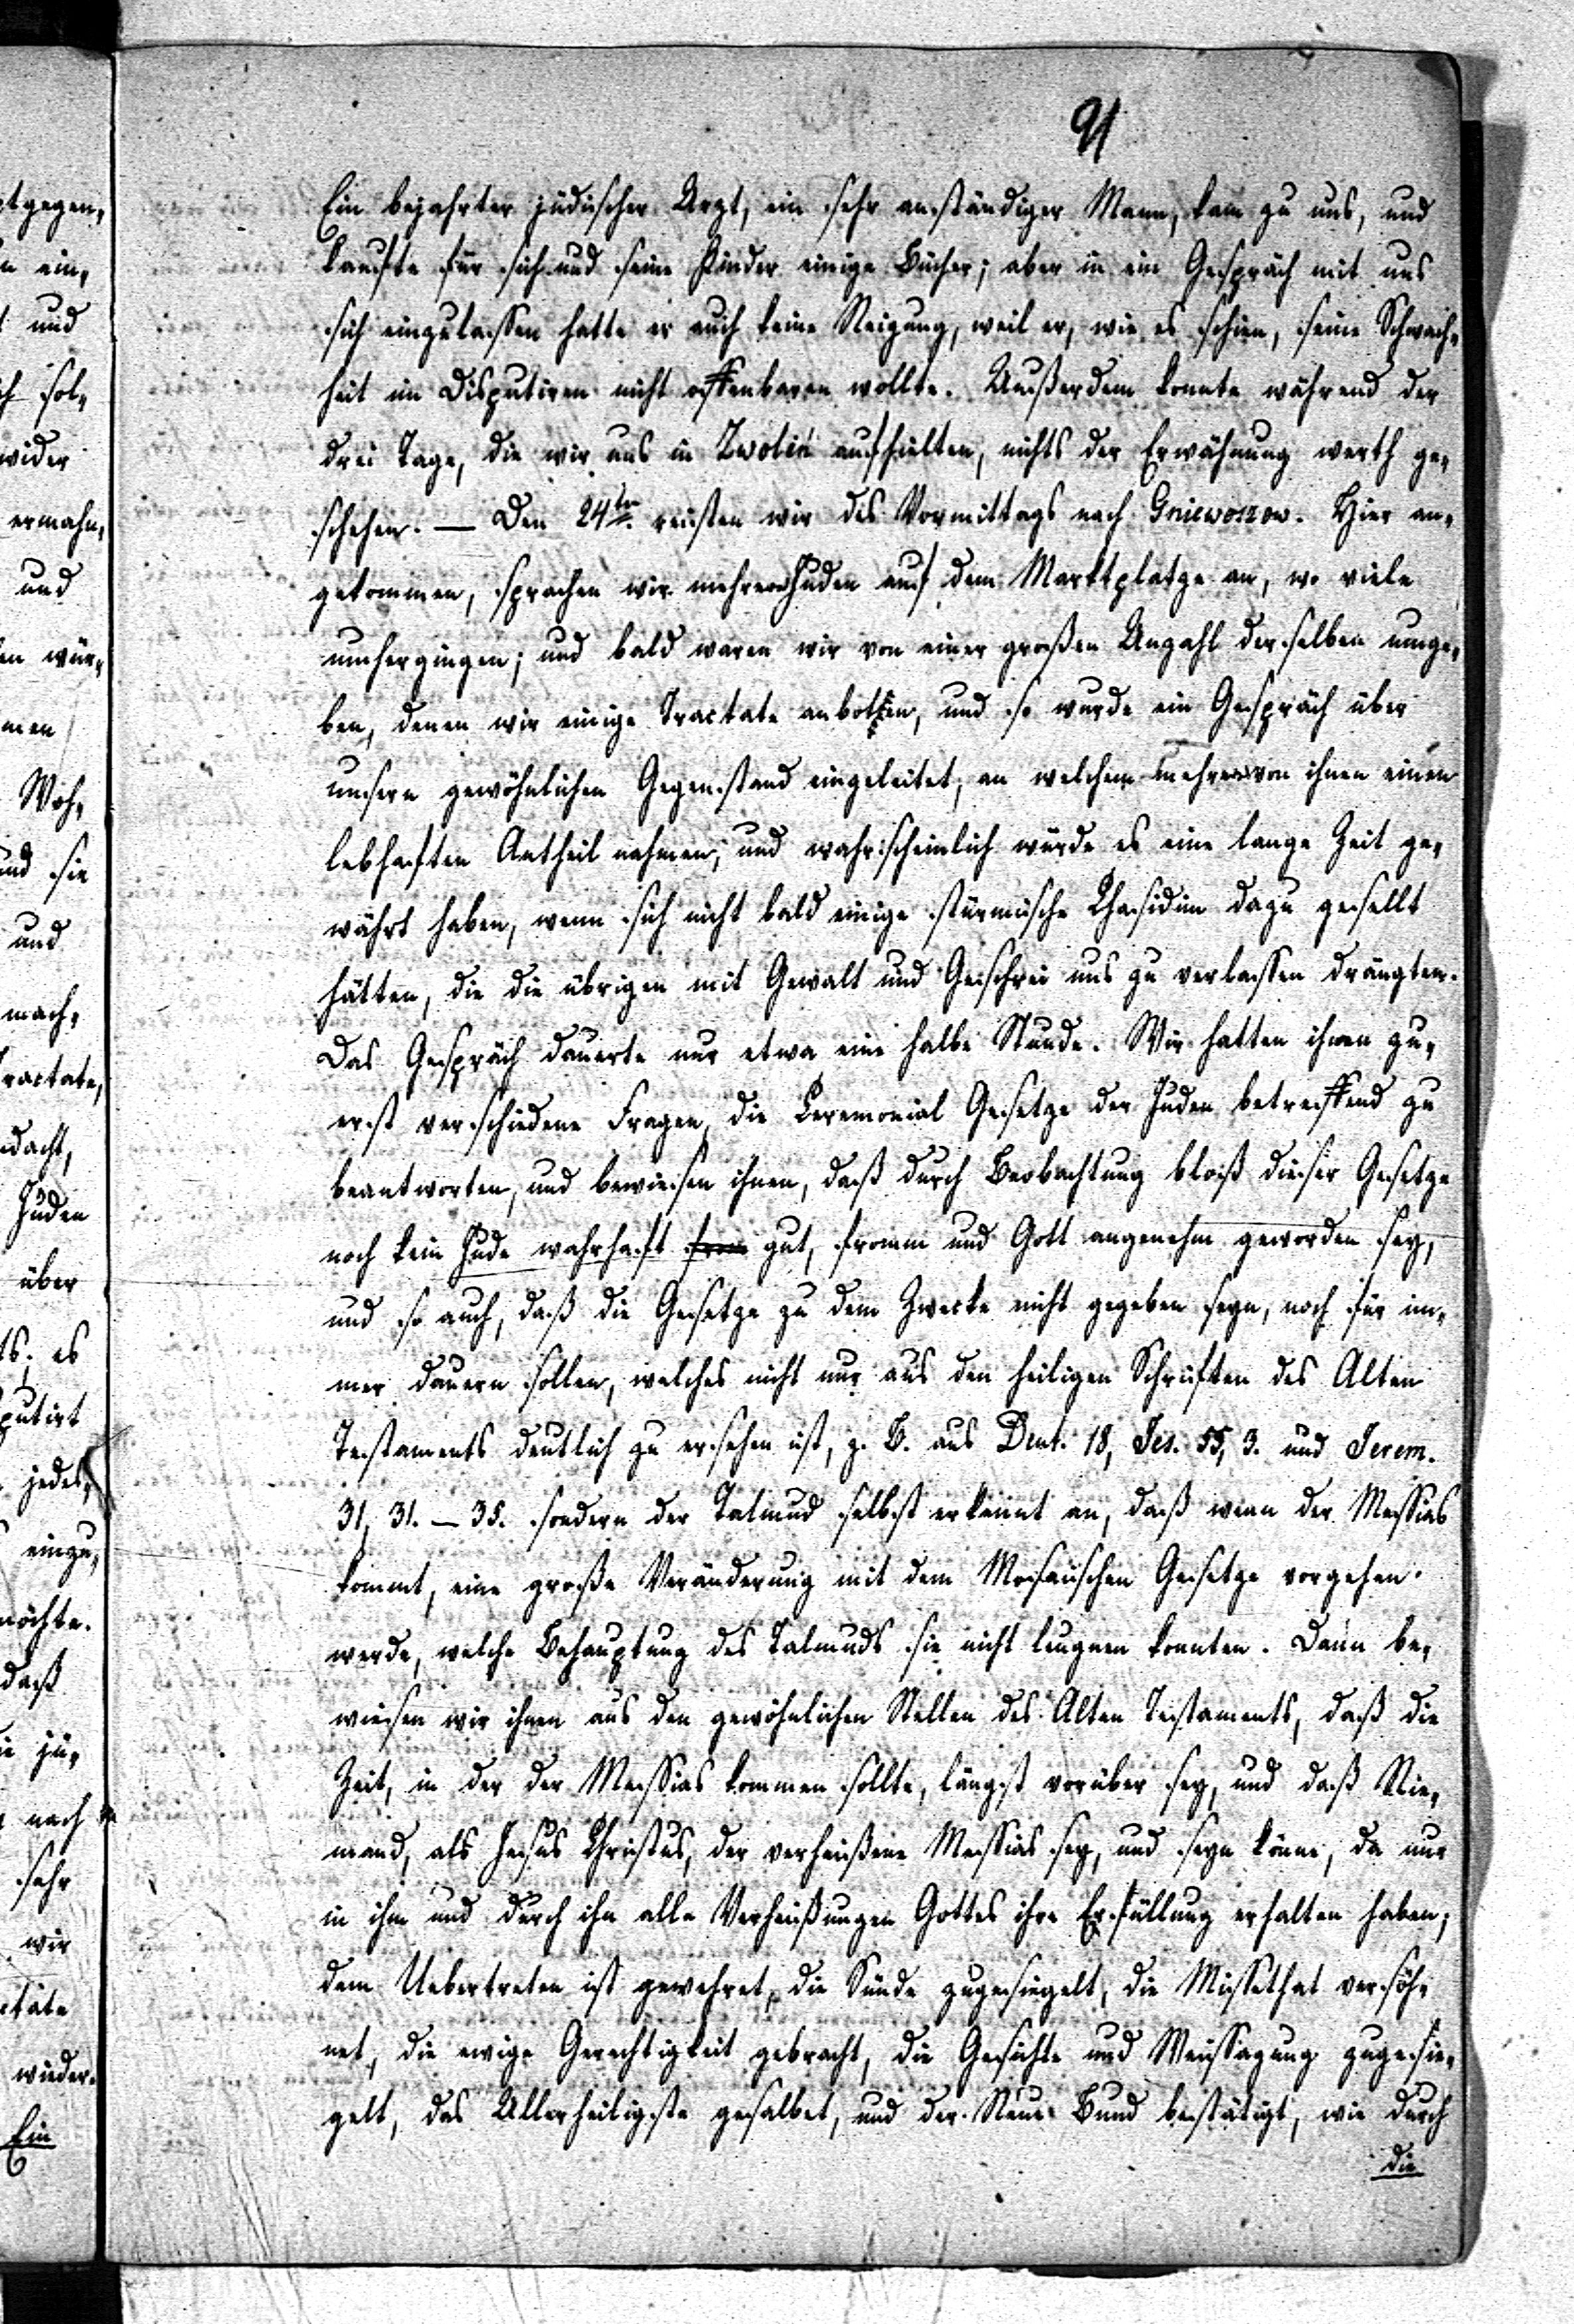 91
Ein bejahrter jüdischer Arzt, ein sehr anständiger Mann, kam zu uns, und
kaufte für sich und seine Kinder einige Bücher; aber in ein Gespräch mit uns
sich einzulassen hatte er auch keine Neigung, weil er, wie es schien, seine Schwach-
heit im Disputiren nicht offenbaren wollte. Außerdem konnte während der
drei Tage, die wir uns in Zwolin aufhielten, nichts der Erwähnung werth ge-
schehen. — Den 24ten reisten wir des Vormittags nach Gniewoszow. Hier an-
gekommen, sprachen wir mehrere Juden auf dem Marktplatze an, wo viele
umhergingen; und bald waren wir von einer großen Anzahl derselben umge-
ben, denen wir einige Tractate anboten, und so wurde ein Gespräch über
unsern gewöhnlichen Gegenstand eingeleitet, an welchem mehrere von ihnen einen
lebhaften Antheil nahmen, und wahrscheinlich würde es eine lange Zeit ge-
währt haben, wenn sich nicht bald einige stürmische Chasidim dazu gesellt
hätten, die die übrigen mit Gewalt und Geschrei uns zu verlassen drängten.
Das Gespräch dauerte nur etwa eine halbe Stunde. Wir hatten ihnen zu-
erst verschiedene Fragen, die Ceremonial Gesetze der Juden betreffend zu
beantworten, und bewiesen ihnen, daß durch Beobachtung bloß dieser Gesetze
noch kein Jude wahrhaft from gut, fromm und Gott angenehm geworden sey,
und so auch, daß die Gesetze zu dem Zwecke nicht gegeben seyn, noch für im-
mer dauern sollen, welches nicht nur aus den heiligen Schriften des Alten
Testaments deutlich zu ersehen ist, z. B. aus Deut. 18, Jes. 55, 3. und Jerem.
31, 31. — 35. sondern der Talmud selbst erkennt an, daß wenn der Messias
kommt, eine große Veränderung mit dem Mosaischen Gesetze vorgehen
werde, welche Behauptung des Talmuds sie nicht leugnen konnten. Dann be-
wiesen wir ihnen aus den gewöhnlichen Stellen des Alten Testaments, daß die
Zeit, in der der Messias kommen sollte, längst vorüber sey, und daß Nie-
mand, als Jesus Christus, der verheißene Messias sey, und seyn könne, da nur
in ihm und durch ihn alle Verheißungen Gottes ihre Erfüllung erhalten haben;
dem Uebertreten ist gewehret, die Sünde zugesiegelt, die Missethat versöh-
net, die ewige Gerechtigkeit gebracht, die Gesichte und Weissagung zugesie-
gelt, das Allerheiligste gesalbet, und der Neue Bund bestätigt, wie durch
die